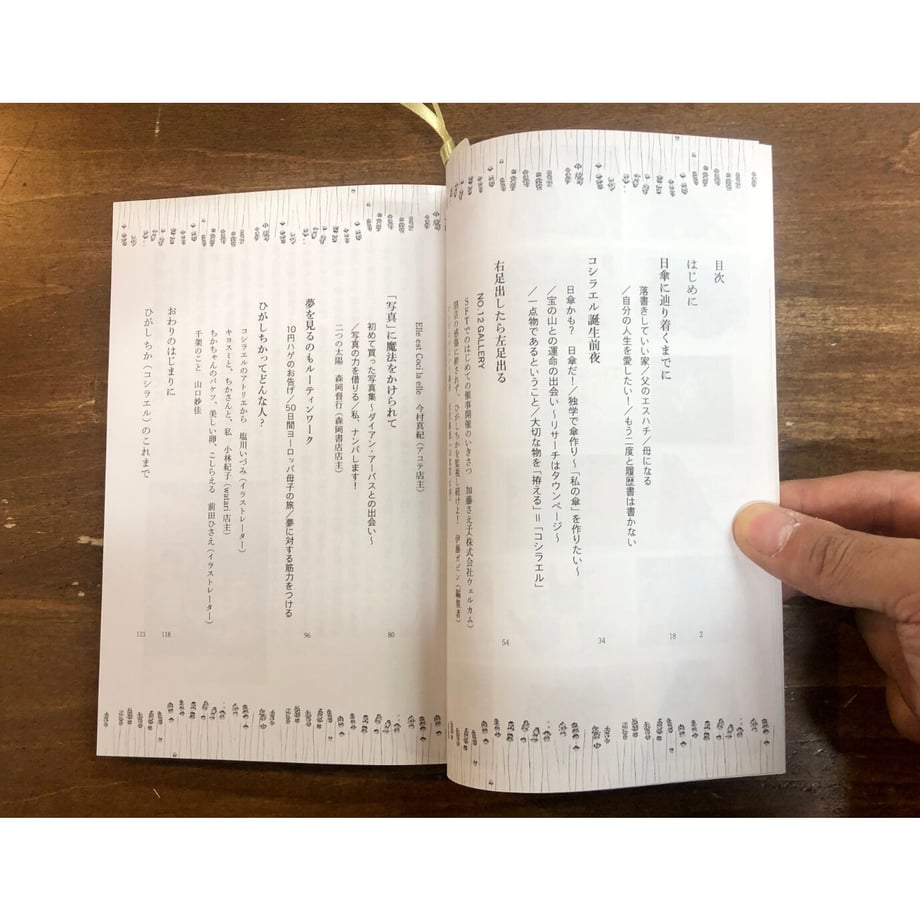 目次
はじめに
2
日傘に辿り着くまでに
18
落書きしていい家／父のエスハチ／母になる
／自分の人生を愛したい！／もう二度と履歴書は書かない
コシラエル誕生前夜
34
日傘かも？　日傘だ！／独学で傘作り～「私の傘」を作りたい～
／宝の山との運命の出会い～リサーチはタウンページ～
／一点物であるということ／大切な物を「拵える」＝「コシラエル」
右足出したら左足出る
54
NO.12 GALLERY
SFTでのはじめての催事開催のいきさつ　加藤さえ子（株式会社ウェルカム）
閉店の感傷に酔されず、ひがしちかを監視し続けよ！　伊藤ガビン（編集者）
Elle est Coci la elle　今村真紀（アコテ店主）
「写真」に魔法をかけられて
80
初めて買った写真集～ダイアン・アーバスとの出会い～
／写真の力を借りる／私、ナンパします！
二つの太陽　森岡督行（森岡書店店主）
夢を見るのもルーティンワーク
96
10円ハゲのお告げ／50日間ヨーロッパ母子の旅／夢に対する筋力をつける
ひがしちかってどんな人？
コシラエルのアトリエから　塩川いづみ（イラストレーター）
キョスミと、ちかさんと、私　小林紀子（watari店主）
ちかちゃんのバケツ、美しい卵、こしらえる　前田ひさえ（イラストレーター）
千架のこと　山口紗佳
おわりのはじまりに
118
ひがしちか（コシラエル）のこれまで
121